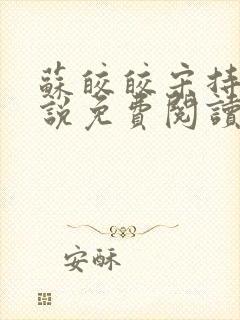 蘇皎皎宋持
說免費閱讀
安酥